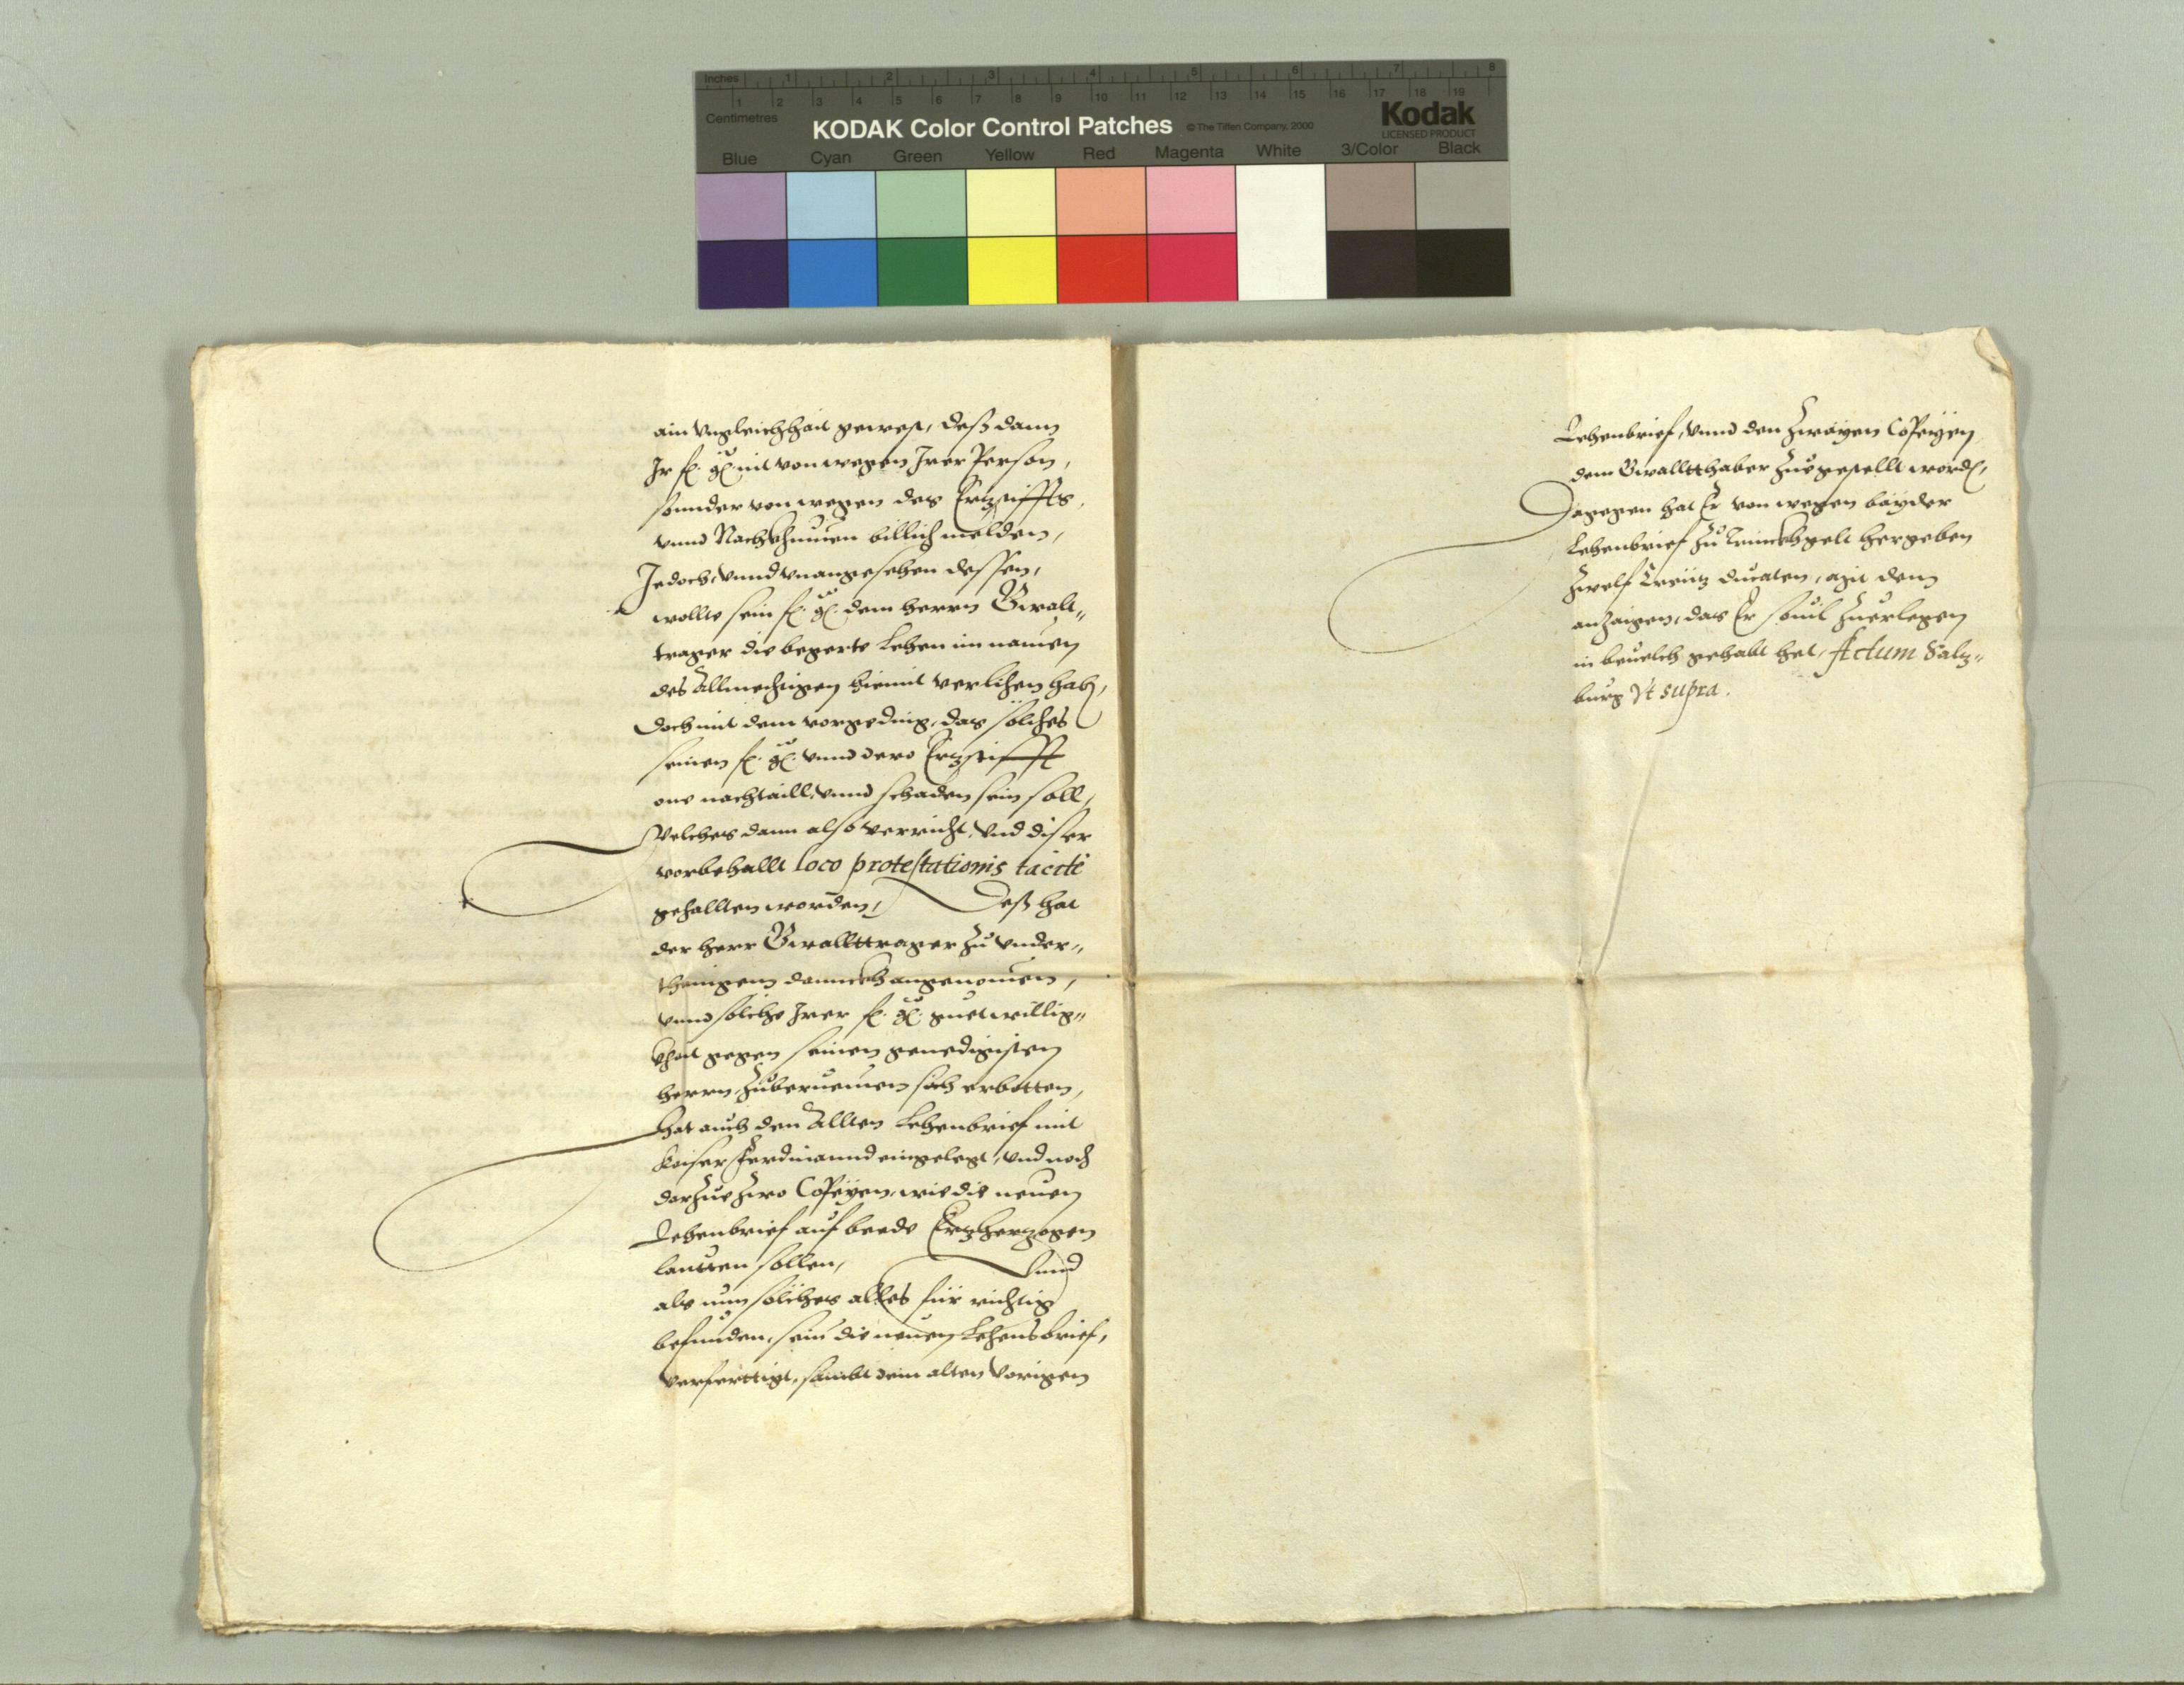 Inches 1 2 3 4 5 6 7 8
Centimetres 1 2 3 4 5 6 7 8 9 10 11 12 13 14 15 16 17 18 19
KODAK Color Control Patches © The Tiffen Company, 2000 Kodak
LICENSED PRODUCT
Blue Cyan Green Yellow Red Magenta White 3/Color Black
ain vngleichhait gewest, deß dann
Ir fr. gn. nit von wegen Irer Person,
sonnder von wegen des Erzstiffts,
vnnd Nachkhumen billich melden,
Jedoch, vnnd vnangesehen dessen,
wollte sein fr. gn. dem herrn Gwalt„
trager die begerte Lehen im namen
des Allmechtigen hiemit verlihen hab,
doch mit dem vorgeding, das sölches
seinen fr. gn. vnnd dero Erzstifft
one nachtaill, vnnd schaden sein soll,
Welches dann also verricht, vnd diser
vorbehallt loco protestationis tacite
gehallten worden, Deß hat
der herr Gwallttrager zu vnder„
thenigem dannckh angenomen,
vnnd sölche Irer fr. gn. guetwillig„
khait gegen seinen genedigisten
herrn, zuberuemen sich erbotten,
Hat auch den Allten Lehenbrief mit
Kaiser Ferdinannd eingelegt, vnd noch
darzue zwo Copeyen, wie die neuen
Lehenbrief auf beede Erzherzogen
lautten sollen, Vnnd
als nun sölches alles für richtig
befunden, sein die neuen Lehensbrief,
verferttigt, sambt dem alten Vorigen
Lehenbrief, vnnd den zwayen Copeyen
dem Gwallthaber zuegestellt word,
Dagegen hat Er von wegen bayder
Lehenbrief zu trinckhgelt hergeben
zwelf Creutz ducaten, mit dem
anzaigen, das Er souil zuerlegen
in beuelch gehabt het, Actum Salz„
burg Vt supra.